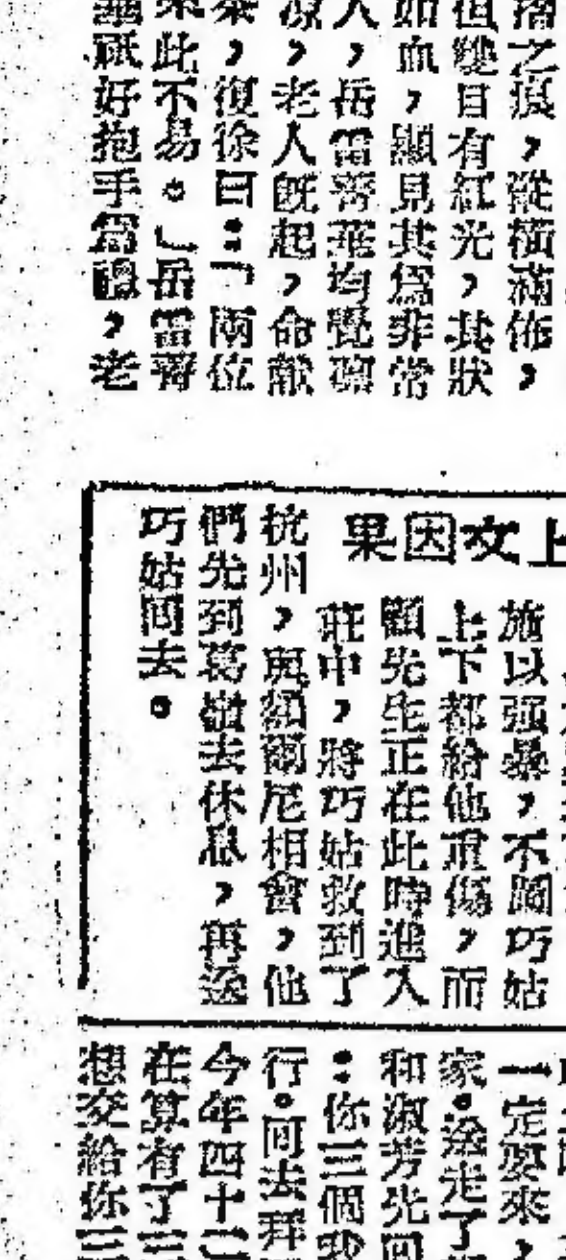 摺之痕，縱橫滿佈，
但雙目有紅光，其狀
如血，顯見其爲非常
人，岳雷
均覺
涼，老人旣起，命獻
茶，復徐曰：「兩位
來此不易。」岳雷
祇好抱手爲禮，老
上文因果
施以强暴，不關巧姑
上下都給他重傷，而
顧先生正在此時進入
莊中，將巧姑救到了
杭州，與
尼相會，他
們先到葛嶺去休息，再送
巧姑回去。
一定要來，
家。送走了
和淑芳先回
：你三個我
行。回去拜
今年四十二
在算有了三
想交給你三